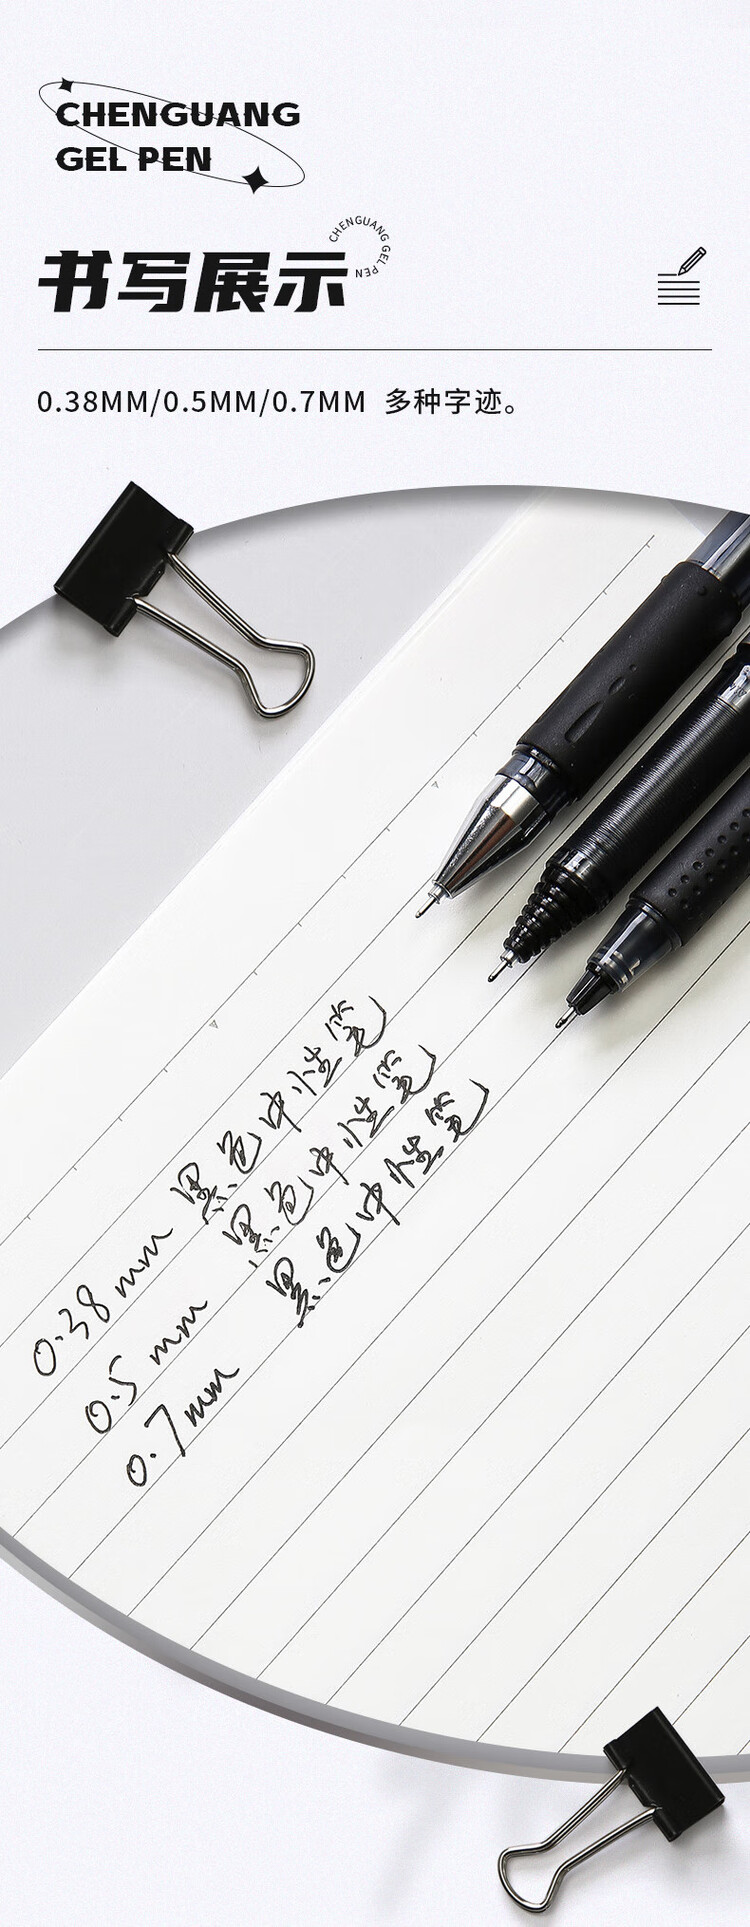 CHENGUANG
GEL PEN
书写展示
CHENGUANG GEL PEN
0.38MM/0.5MM/0.7MM 多种字迹。
0.38mm 黑色中性笔
0.5mm 黑色中性笔
0.7mm 黑色中性笔